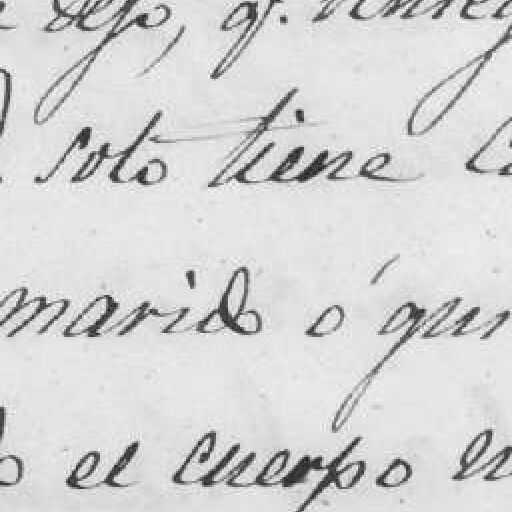 dejo, q.
soto tiene
marido ó
el cuerpo